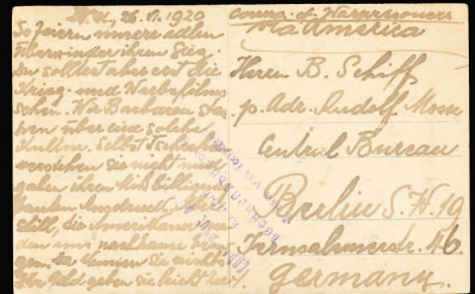 26. VI. 1920
So feiern unsere edlen
Überwinder ihren Sieg.
Du solltest aber erst die
Krieg- und Werbefilms
sehen. Wir Barbaren ste-
hen über eine solche
Kultur. Selbst Tschechen
verstehen sie nicht und
geben ihren Mißbilligung
lauten Ausdruck.
still, die Amerikaner
den uns nachhause brin-
gen. die können sie nicht
Geld geben sie leicht her
via America
Herrn B. Schiff
p. Adr. Rudolf Mosse
Central Bureau
Berlin S.W. 19
Jerusalemerstr. 46
Germany.